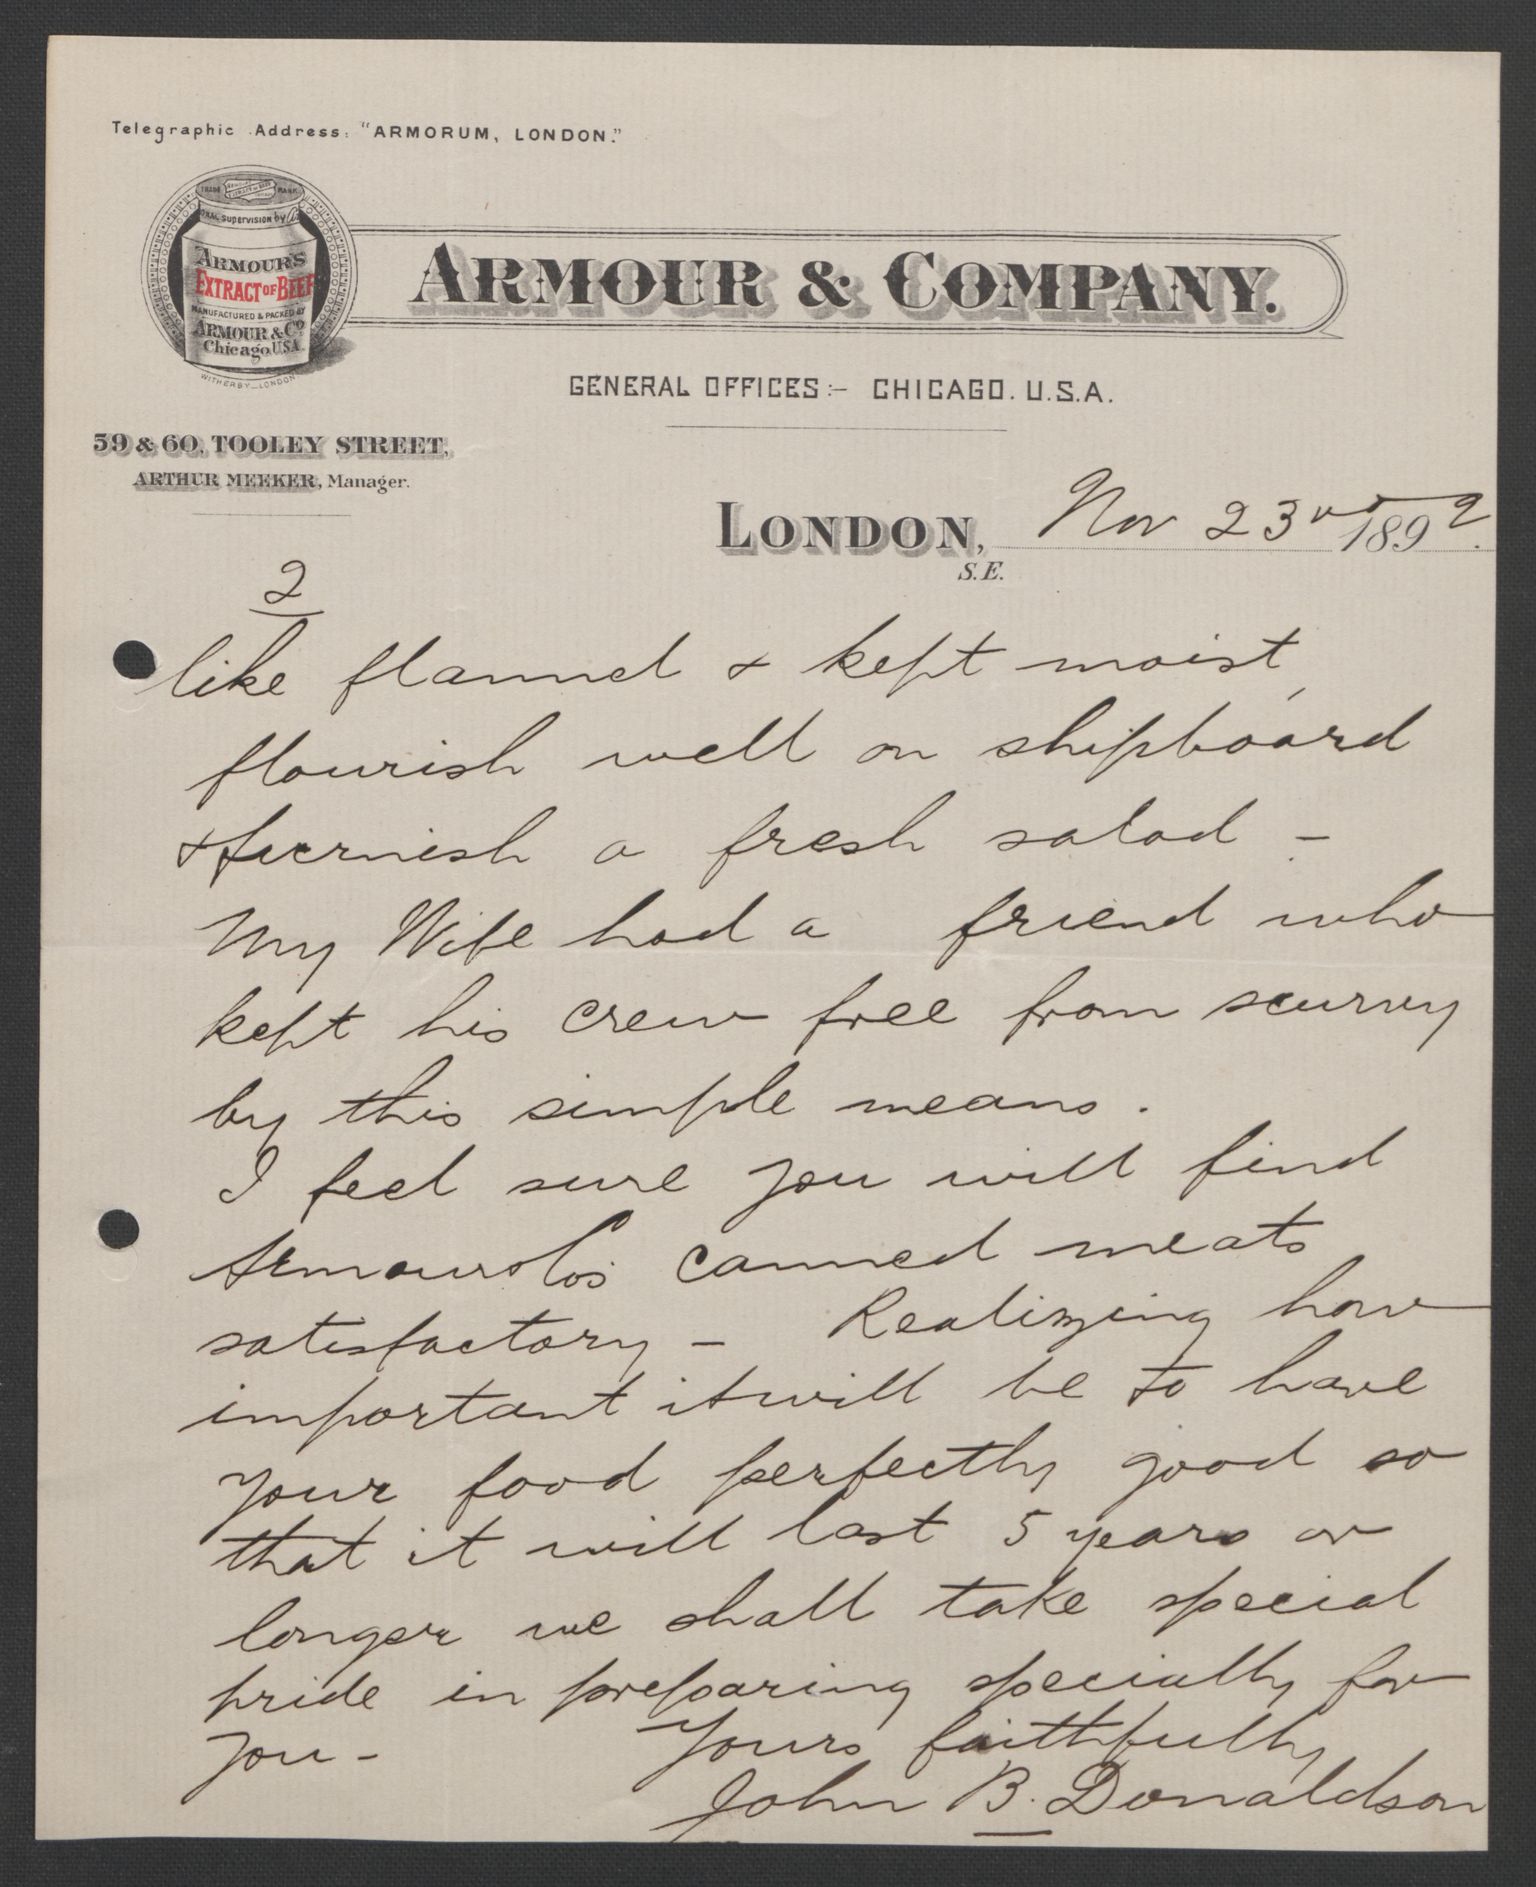 Telegraphic Address: "ARMORUM, LONDON."
TRADE MARK
ONAL supervision by
ARMOUR'S
EXTRACT OF BEEF
MANUFACTURED & PACKED BY
ARMOUR & Co
Chicago, U.S.A.
WITHERBY_LONDON
ARMOUR & COMPANY.
GENERAL OFFICES:- CHICAGO. U.S.A.
59 & 60, TOOLEY STREET,
ARTHUR MEEKER, Manager.
LONDON, Nov 23rd 1892.
S.E.
2
like flannel & kept moist,
flourish well on shipboard
& furnish a fresh salad -
My Wife had a friend who
kept his crew free from scurvy
by this simple means.
I feel sure you will find
Armour & Co's canned meats
satisfactory - Realizing how
important it will be to have
your food perfectly good so
that it will last 5 years or
longer we shall take special
pride in preparing specially for
you - Yours faithfully
John B. Donaldson